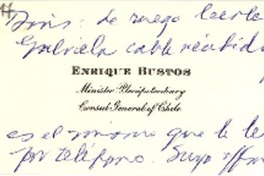 Doris: de ruego leerle
Gabriela cable recibido
ENRIQUE BUSTOS
Minister Plenipotentiary
Consul General of Chile
es el mismo que le leí
por teléfono. Suyo affmo